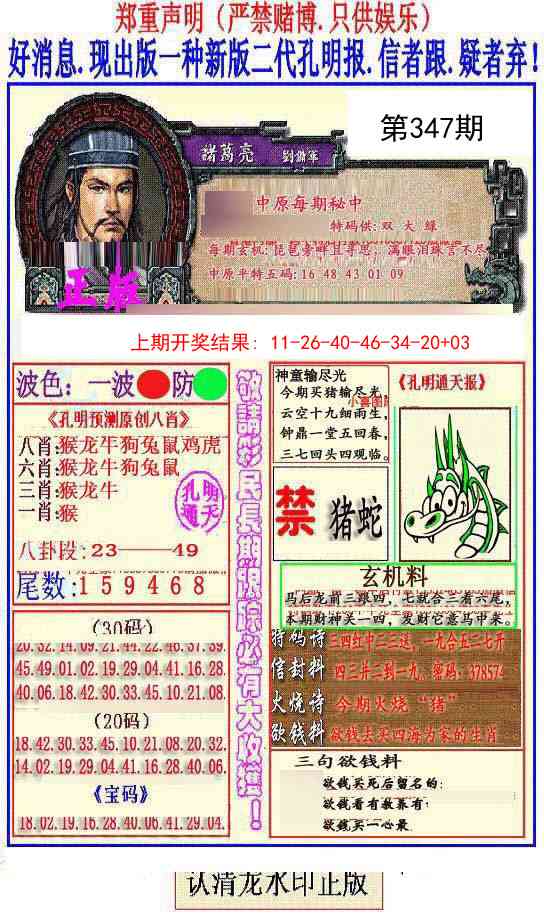 郑重声明（严禁赌博.只供娱乐）
好消息.现出版一种新版二代孔明报.信者跟.疑者弃!
第347期
諸葛亮
中原每期秘中
特码供:双 大 緑
每期玄机:琵琶旁畔且寻思，满眼泪珠言不尽
中原平特五码:16 48 43 01 09
正版
上期开奖结果: 11-26-40-46-34-20+03
波色: 一波 防
《孔明预测原创八肖》
八肖:猴龙牛狗兔鼠鸡虎
六肖:猴龙牛狗兔鼠
三肖:猴龙牛
一肖:猴
孔明
通天
八卦段:23——49
尾数:159468
(30码)
20.32.14.09.21.44.22.48.37.39.
45.49.01.02.19.29.04.41.16.28.
40.06.18.42.30.33.45.10.21.08
(20码)
18.42.30.33.45.10.21.08.20.32.
14.02.19.29.04.41.16.28.40.06.
《宝码》
18.02.19.16.28.40.06.41.29.04.
敬請彩民長期跟踪必有大收獲！
神童输尽光
今期买猪输尽光
云空十九细雨生，
钟鼎一堂五回春，
三七回头四观临。
禁 猪蛇
《孔明通天报》
玄机料
马后龙前三跟四，七就合二看六尾，
本期财神买一四，发财它意马中来。
特码诗 三四红中二三送，一九合五二七开
信封料 四三并二到一九。密码: 378574
火烧诗 今期火烧“猪”
欲钱料 欲钱去买四海为家的生肖
三句欲钱料
欲钱买死后留名的:
欲钱看有教养有:
欲钱买一心最
认清龙水印正版